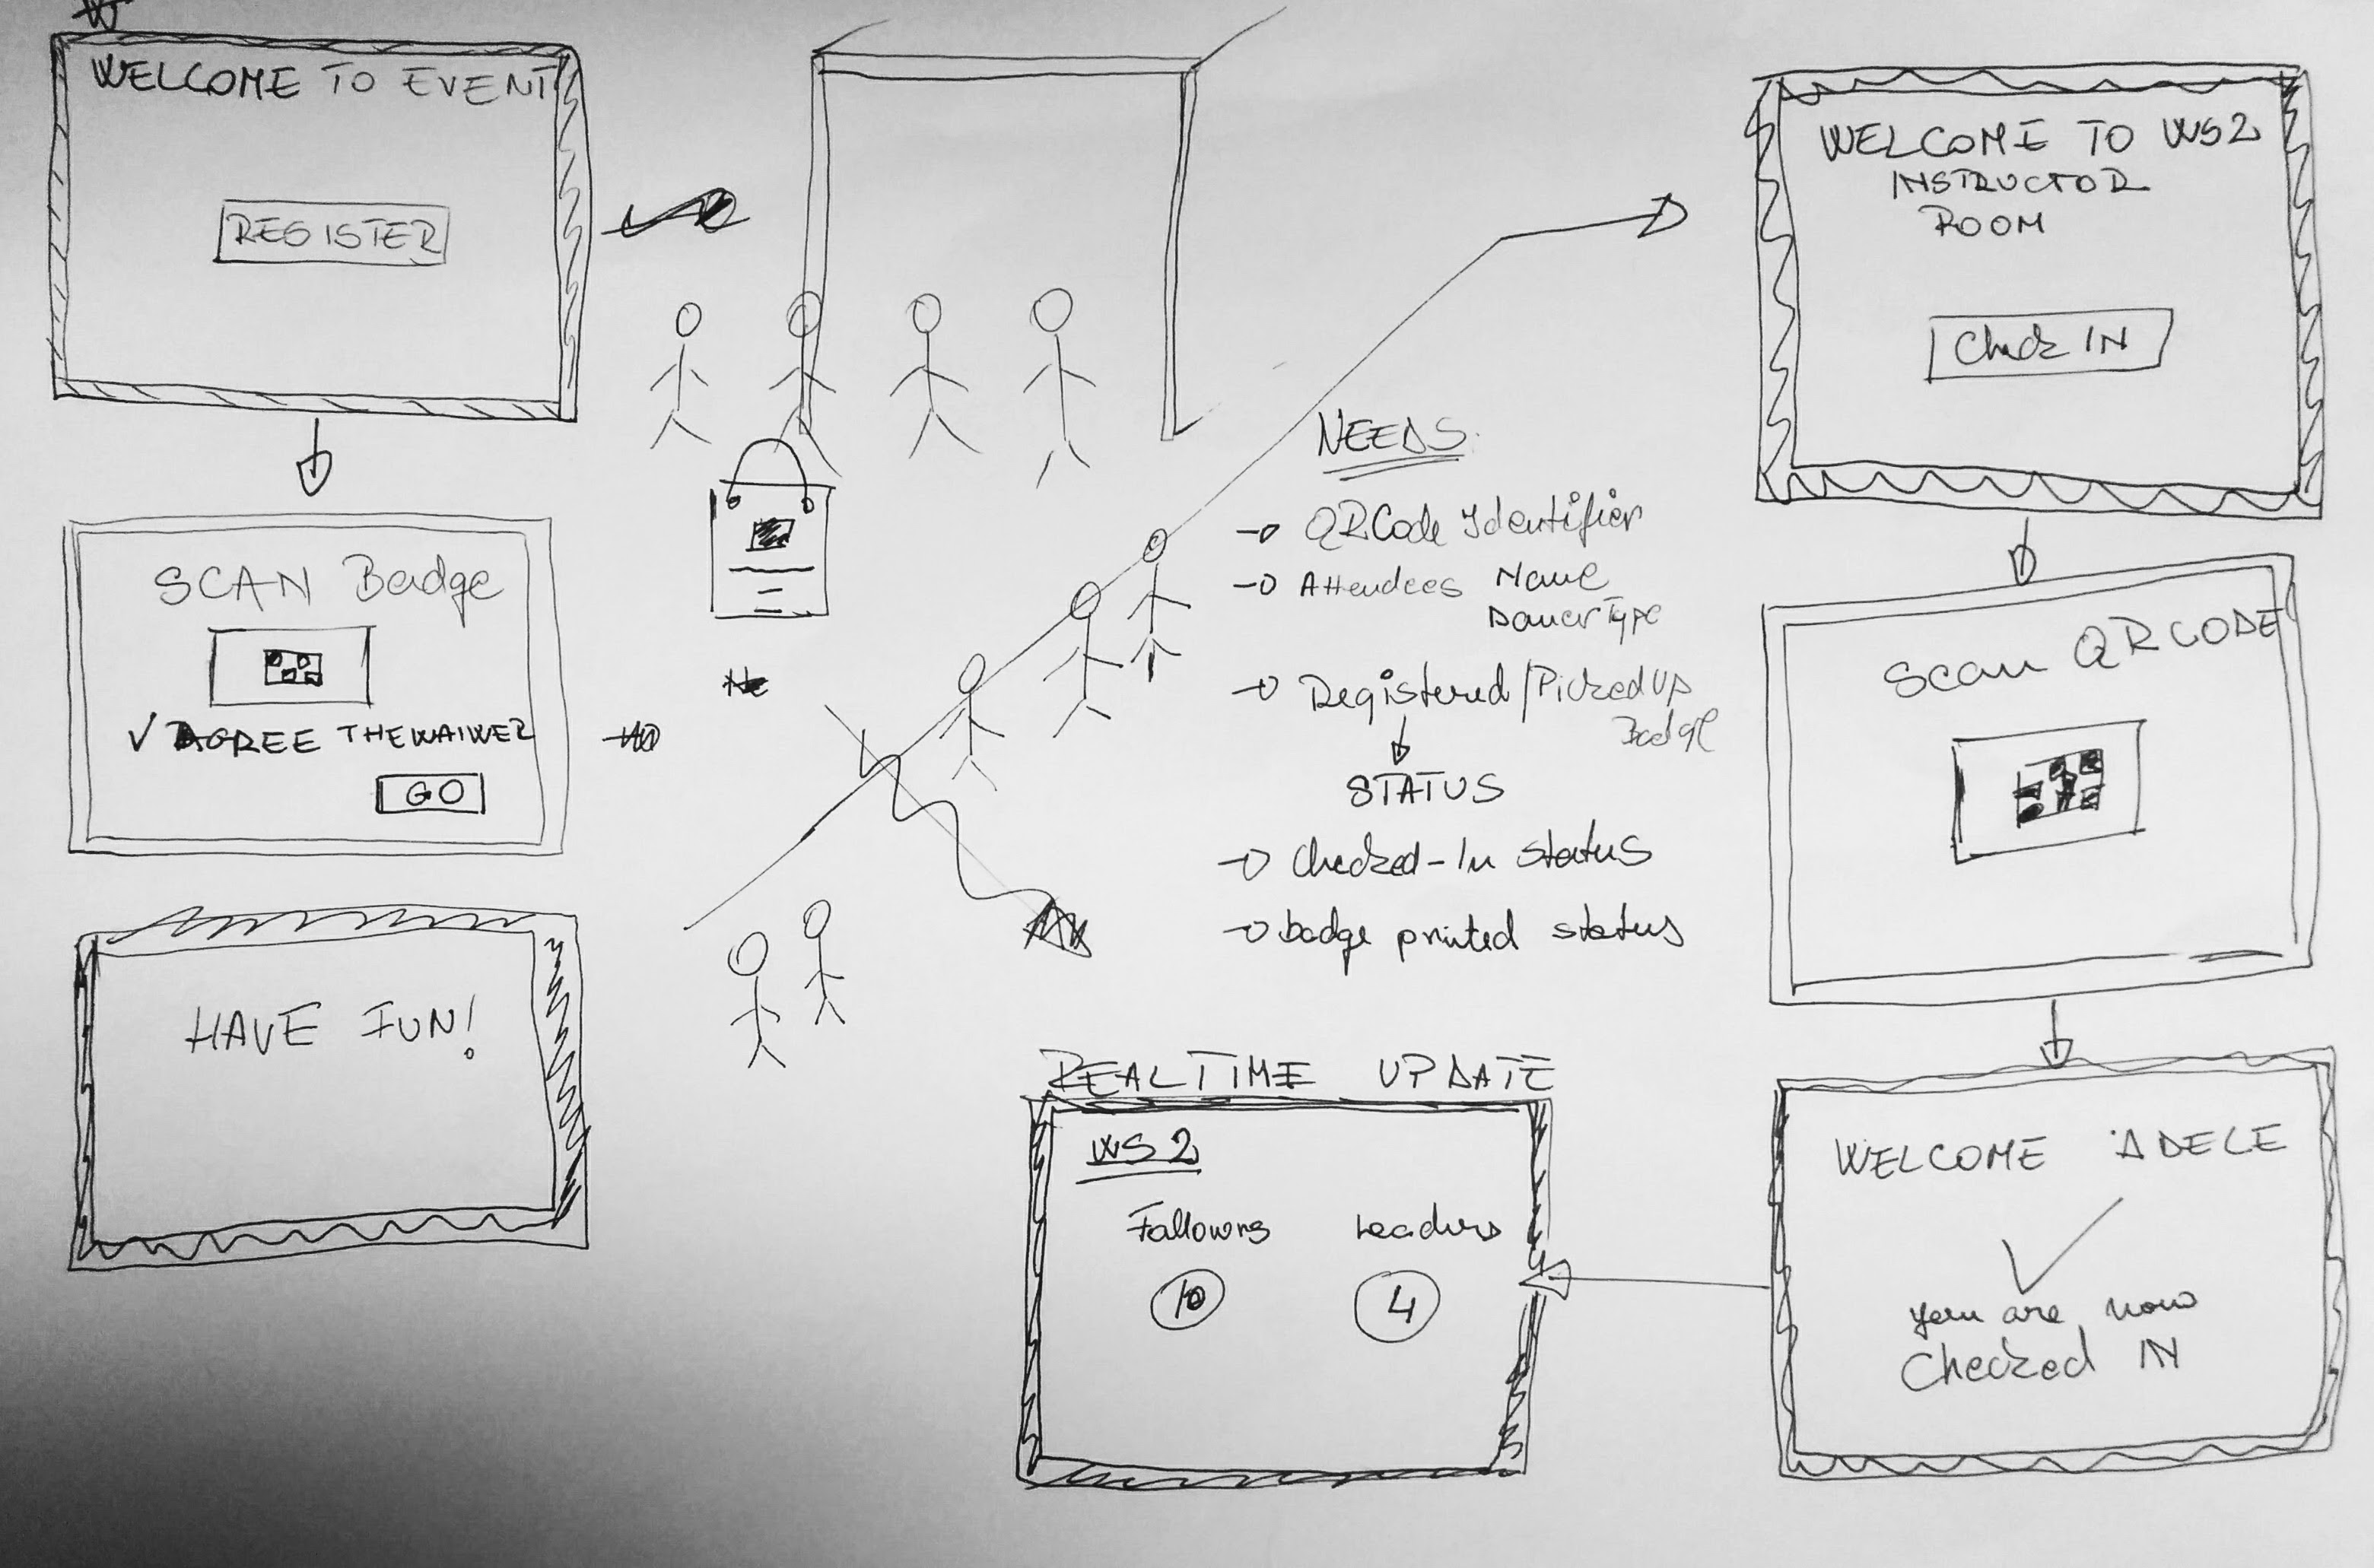 WELCOME TO EVENT
REGISTER
SCAN Badge
✓ AGREE THEWAIWER
GO
HAVE FUN!
NEEDS
QRCode Identifier
Attendees Name
Dancer Type
Registered/Picked Up
Badge
STATUS
Checked-In status
badge printed status
REALTIME UPDATE
WS2
Followrs Leaders
10 4
WELCOME TO WS2
INSTRUCTOR
ROOM
Check IN
Scan QR CODE
WELCOME ADELE
you are now
Checked IN